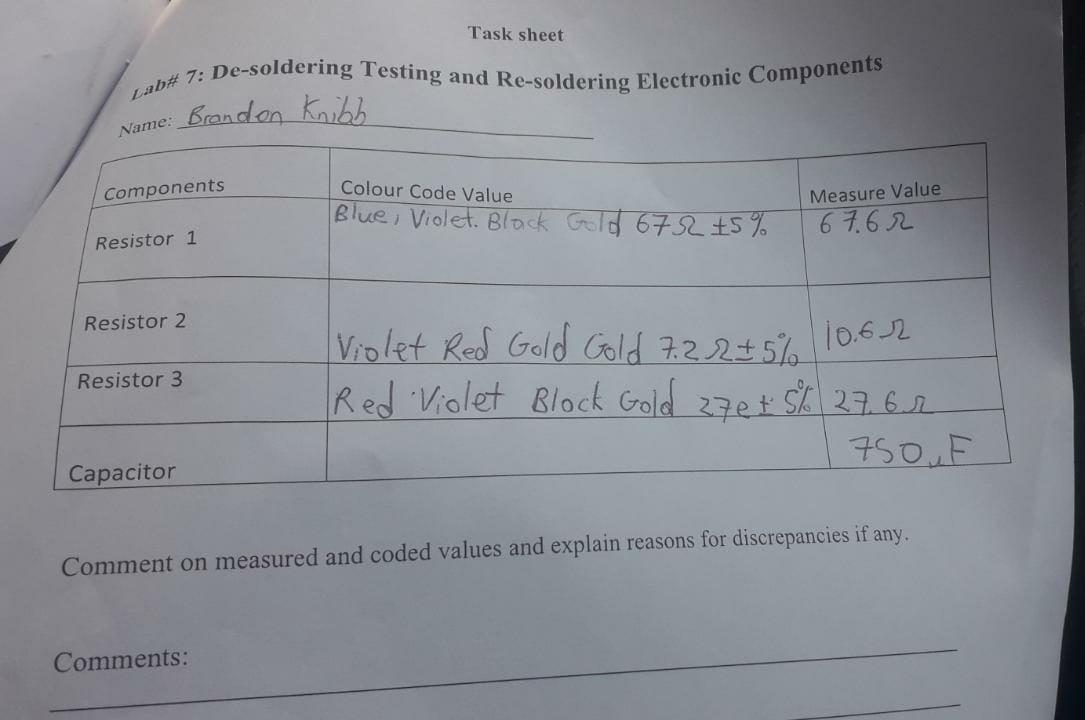 Task sheet
Lab# 7: De-soldering Testing and Re-soldering Electronic Components
Name: Brandon Knibb
Components Colour Code Value Measure Value
Resistor 1 Blue, Violet. Black Gold 67Ω ±5% 67.6Ω
Resistor 2 Violet Red Gold Gold 7.2Ω±5% 10.6Ω
Resistor 3 Red Violet Black Gold 27e± 5% 27.6Ω
Capacitor 750µF
Comment on measured and coded values and explain reasons for discrepancies if any.
Comments: